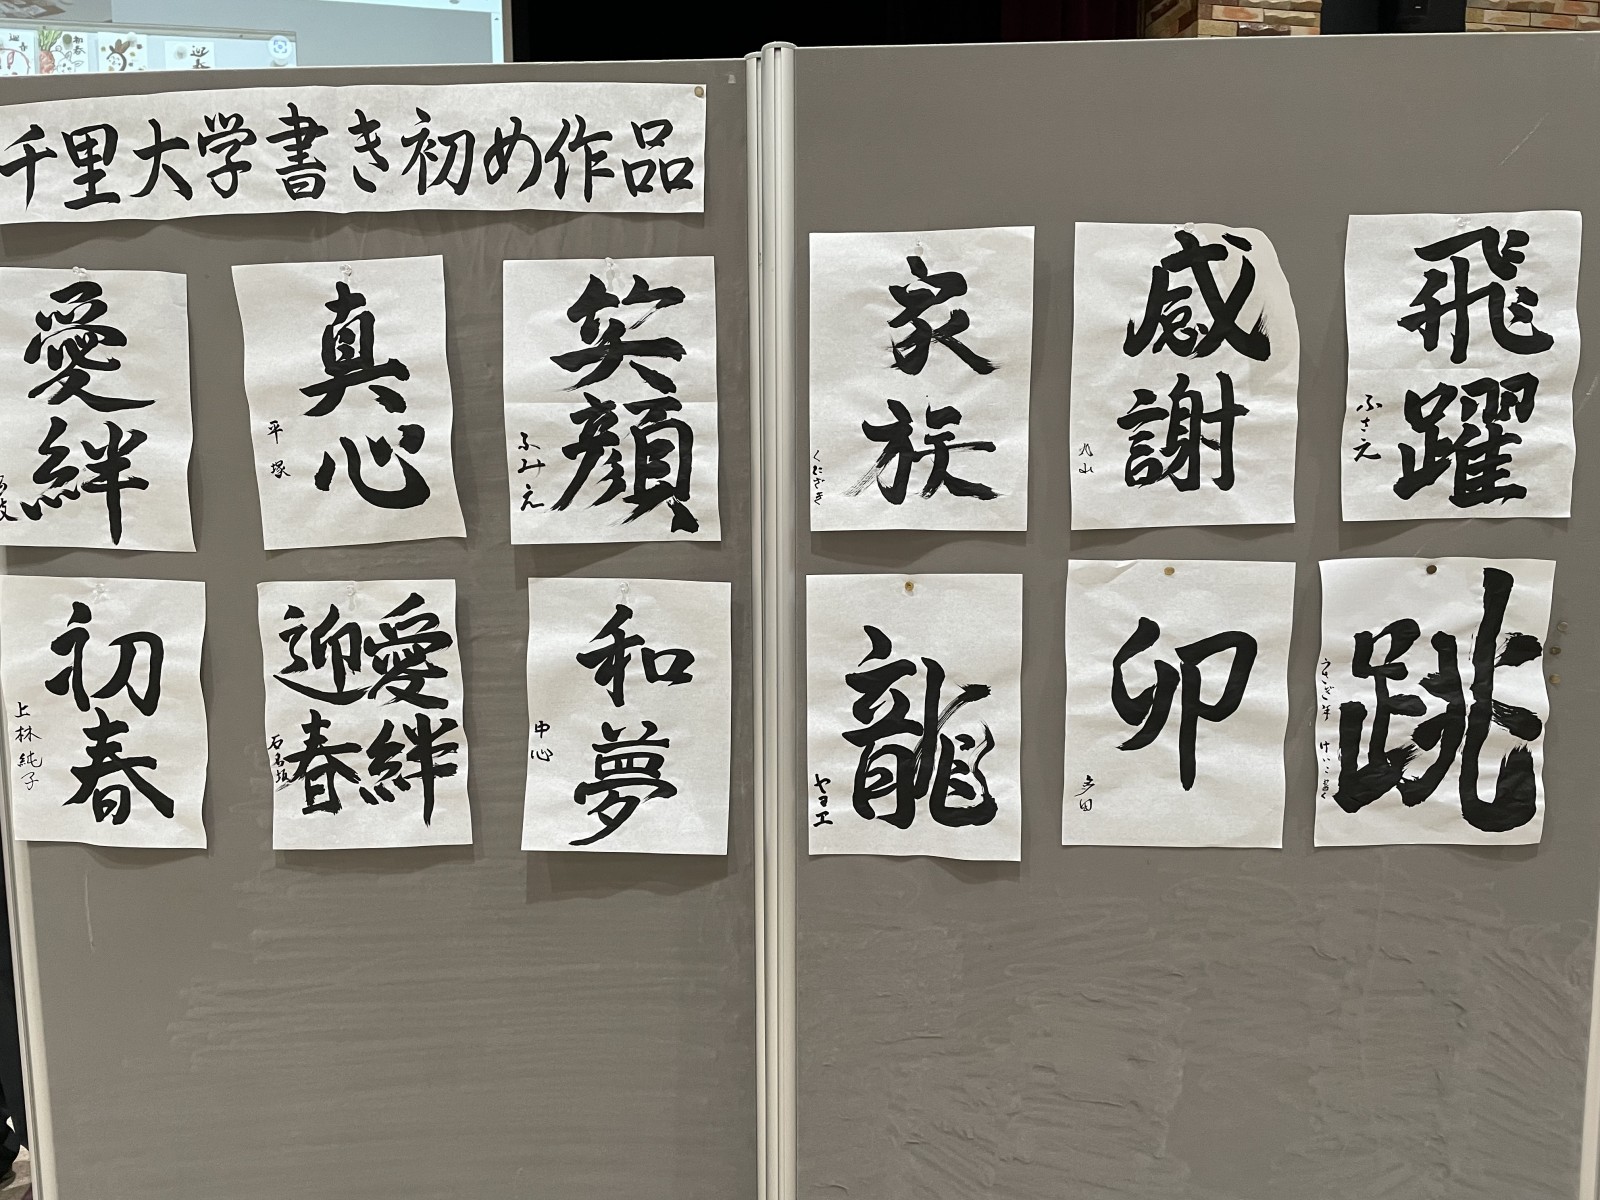 千里大学書き初め作品
愛絆
真心
平塚
笑顔
ふみえ
家族
くにざき
感謝
飛躍
ふさえ
初春
上林純子
愛絆
迎春
石名坂
和夢
中心
龍
ヤヨエ
卯
多田
跳
うさぎ年
初春
迎春